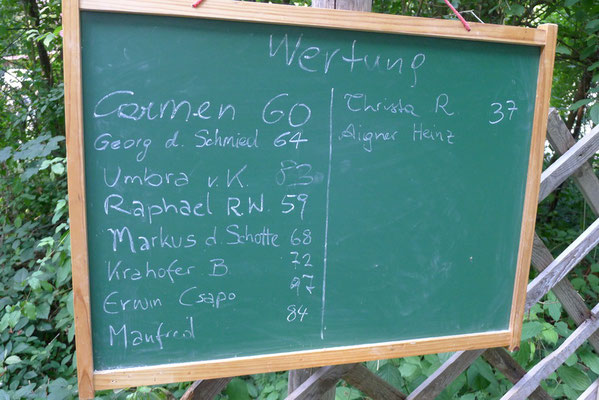 Wertung
Carmen 60
Georg d. Schmied 64
Umbra v. K. 83
Raphael R.W. 59
Markus d. Schotte 68
Krahofer B 72
Erwin Csapo 97
Manfred 84
Christa R 37
Aigner Heinz